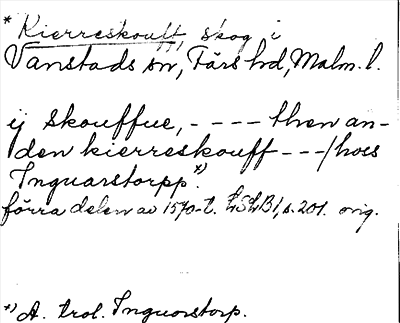 * Kierreskouff, skog i
Vanstads sn, Färs hd, Malm. l.
ij skouffue, - - - - then an-
den kierreskouff - - -/hoes
Inguarstorpp *).
förra delen av 1570-t. LStB1, s. 201. orig.
*) A. trol. Inguorstorp.